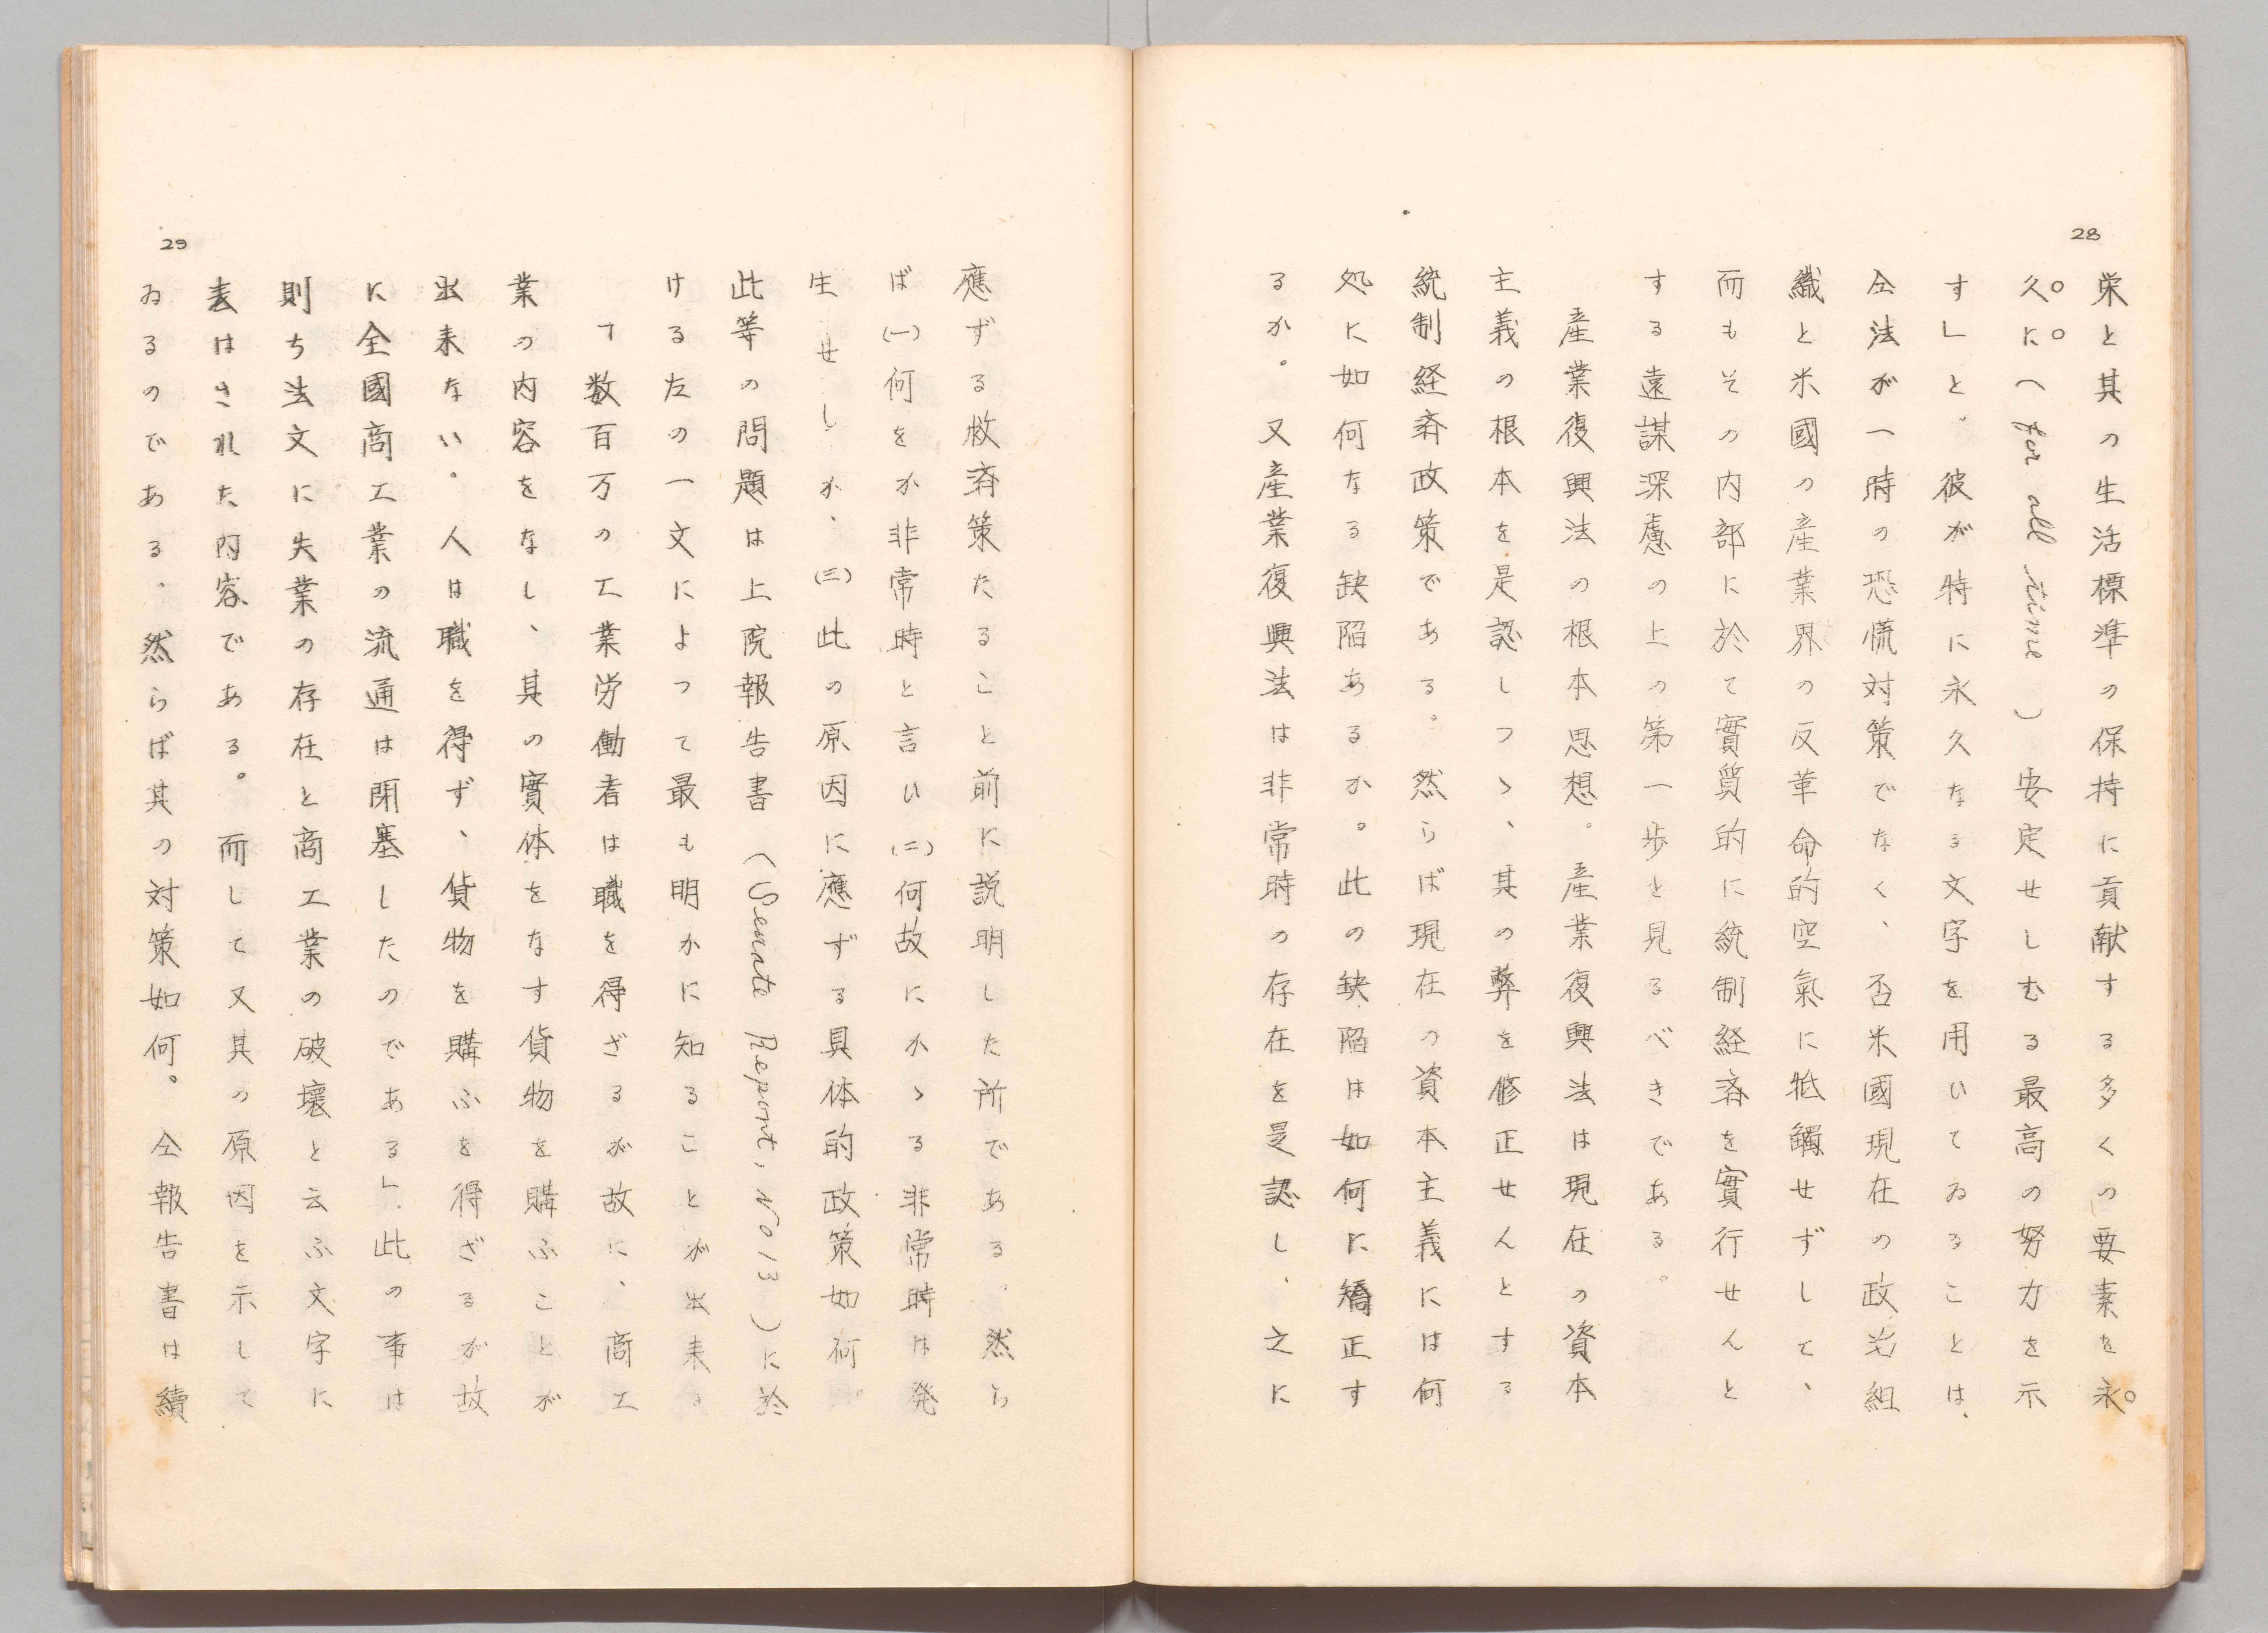 28
栄と其の生活標準の保持に貢献する多くの要素を永
久に(for all time)安定せしむる最高の努力を示
す」と。彼が特に永久なる文字を用ひてゐることは、
仝法が一時の恐慌対策でなく、否米國現在の政治組
織と米國の産業界の反革命的空氣に牴觸せずして、
而もその内部に於て實質的に統制経済を實行せんと
する遠謀深慮の上の第一歩と見るべきである。
産業復興法の根本思想。産業復興法は現在の資本
主義の根本を是認しつゝ、其の弊を修正せんとする
統制経済政策である。然らば現在の資本主義には何
処に如何なる缺陷あるか。此の缺陷は如何に矯正す
るか。又産業復興法は非常時の存在を是認し、之に
應ずる救済策たること前に説明した所である。然ら
ば(一)何をか非常時と言ひ(二)何故にかゝる非常時は発
生せしか、(三)此の原因に應ずる具体的政策如何。
此等の問題は上院報告書(Senate Report, No 13)に於
ける左の一文によつて最も明かに知ることが出来る
「数百万の工業労働者は職を得ざるが故に、商工
業の内容をなし、其の實体をなす貨物を購ふことが
出来ない。人は職を得ず、貨物を購ふを得ざるが故
に全國商工業の流通は閉塞したのである」此の事は
則ち法文に失業の存在と商工業の破壊と云ふ文字に
表はされた内容である。而して又其の原因を示して
ゐるのである、然らば其の対策如何。仝報告書は續
29